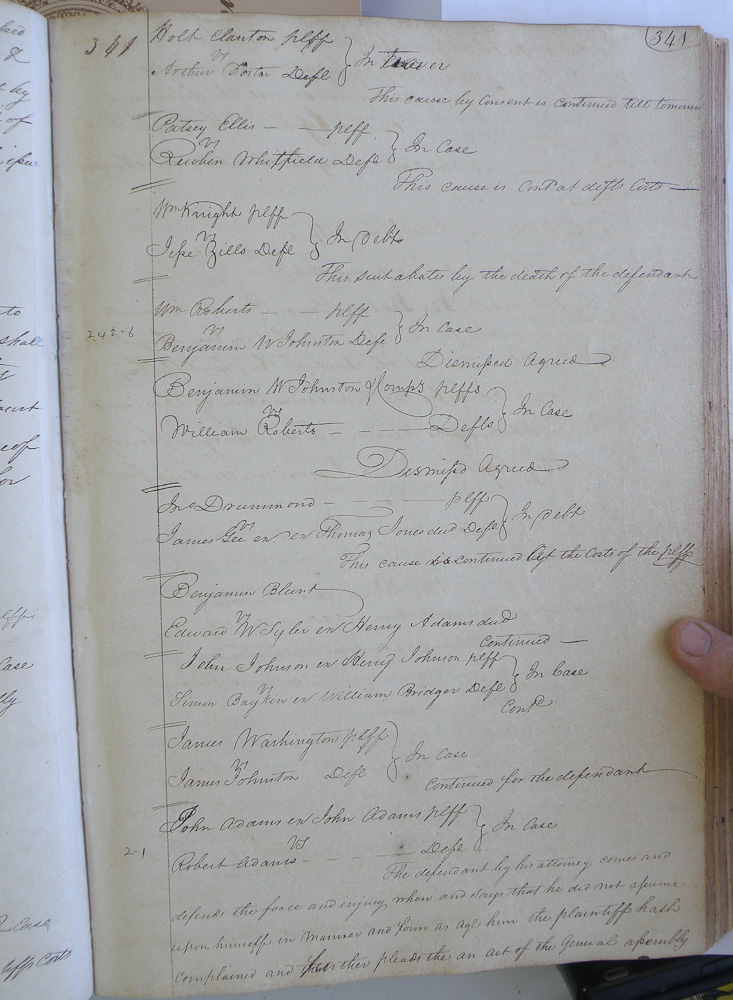 341
341
Holt Clanton plff
vs } In Trover
Arthur Foster Deft
This cause by Consent is continued till tomorrow
Patsey Ellis — — plff
vs } In Case
Reuben Whitfield Deft
This cause is Contd at defts Costs —
Wm Knight plff
vs } In Debt
Jesse Zills Deft
This suit abates by the death of the defendant
Wm Roberts — — plff
242-6
vs } In Case
Benjamin W Johnston Deft
Dismissed Agreed
Benjamin W Johnston & Comps plffs
vs } In Case
William Roberts — — — Defts
Dismissd Agreed
Jno Drummond — — — plff
vs } In Debt
James Gee ex en Thomas Jones decd Deft
This cause is continued at the Costs of the plff
Benjamin Blunt
vs
Edward W Tyler ex Henry Adams decd
Continued —
John Johnson ex Henry Johnson plff
vs } In Case
Simon Boykin ex William Bridger Deft
Contd
James Washington plff
vs } In Case
James Johnston Deft
Continued for the defendant
John Adams ex John Adams plff
vs } In Case
2-1
Robert Adams — — — Deft
The defendant by his attorney comes and
defends the force and injury when and says that he did not assume
upon himself in manner and form as agt him the plaintiff hath
complained and further pleads the an act of the General assembly
to
shall
of
or
Case
by
of
Case
Costs